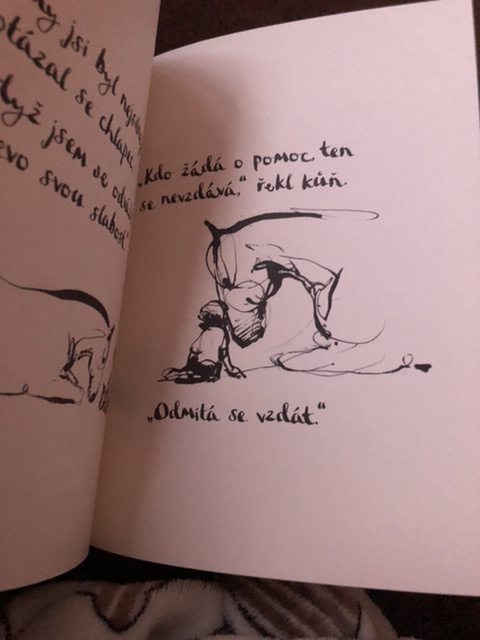 jsi byl
otázal se chlapec
jsem se
svou slabost"
„Kdo žádá o pomoc, ten
se nevzdává,“ řekl kůň.
„Odmítá se vzdát.“